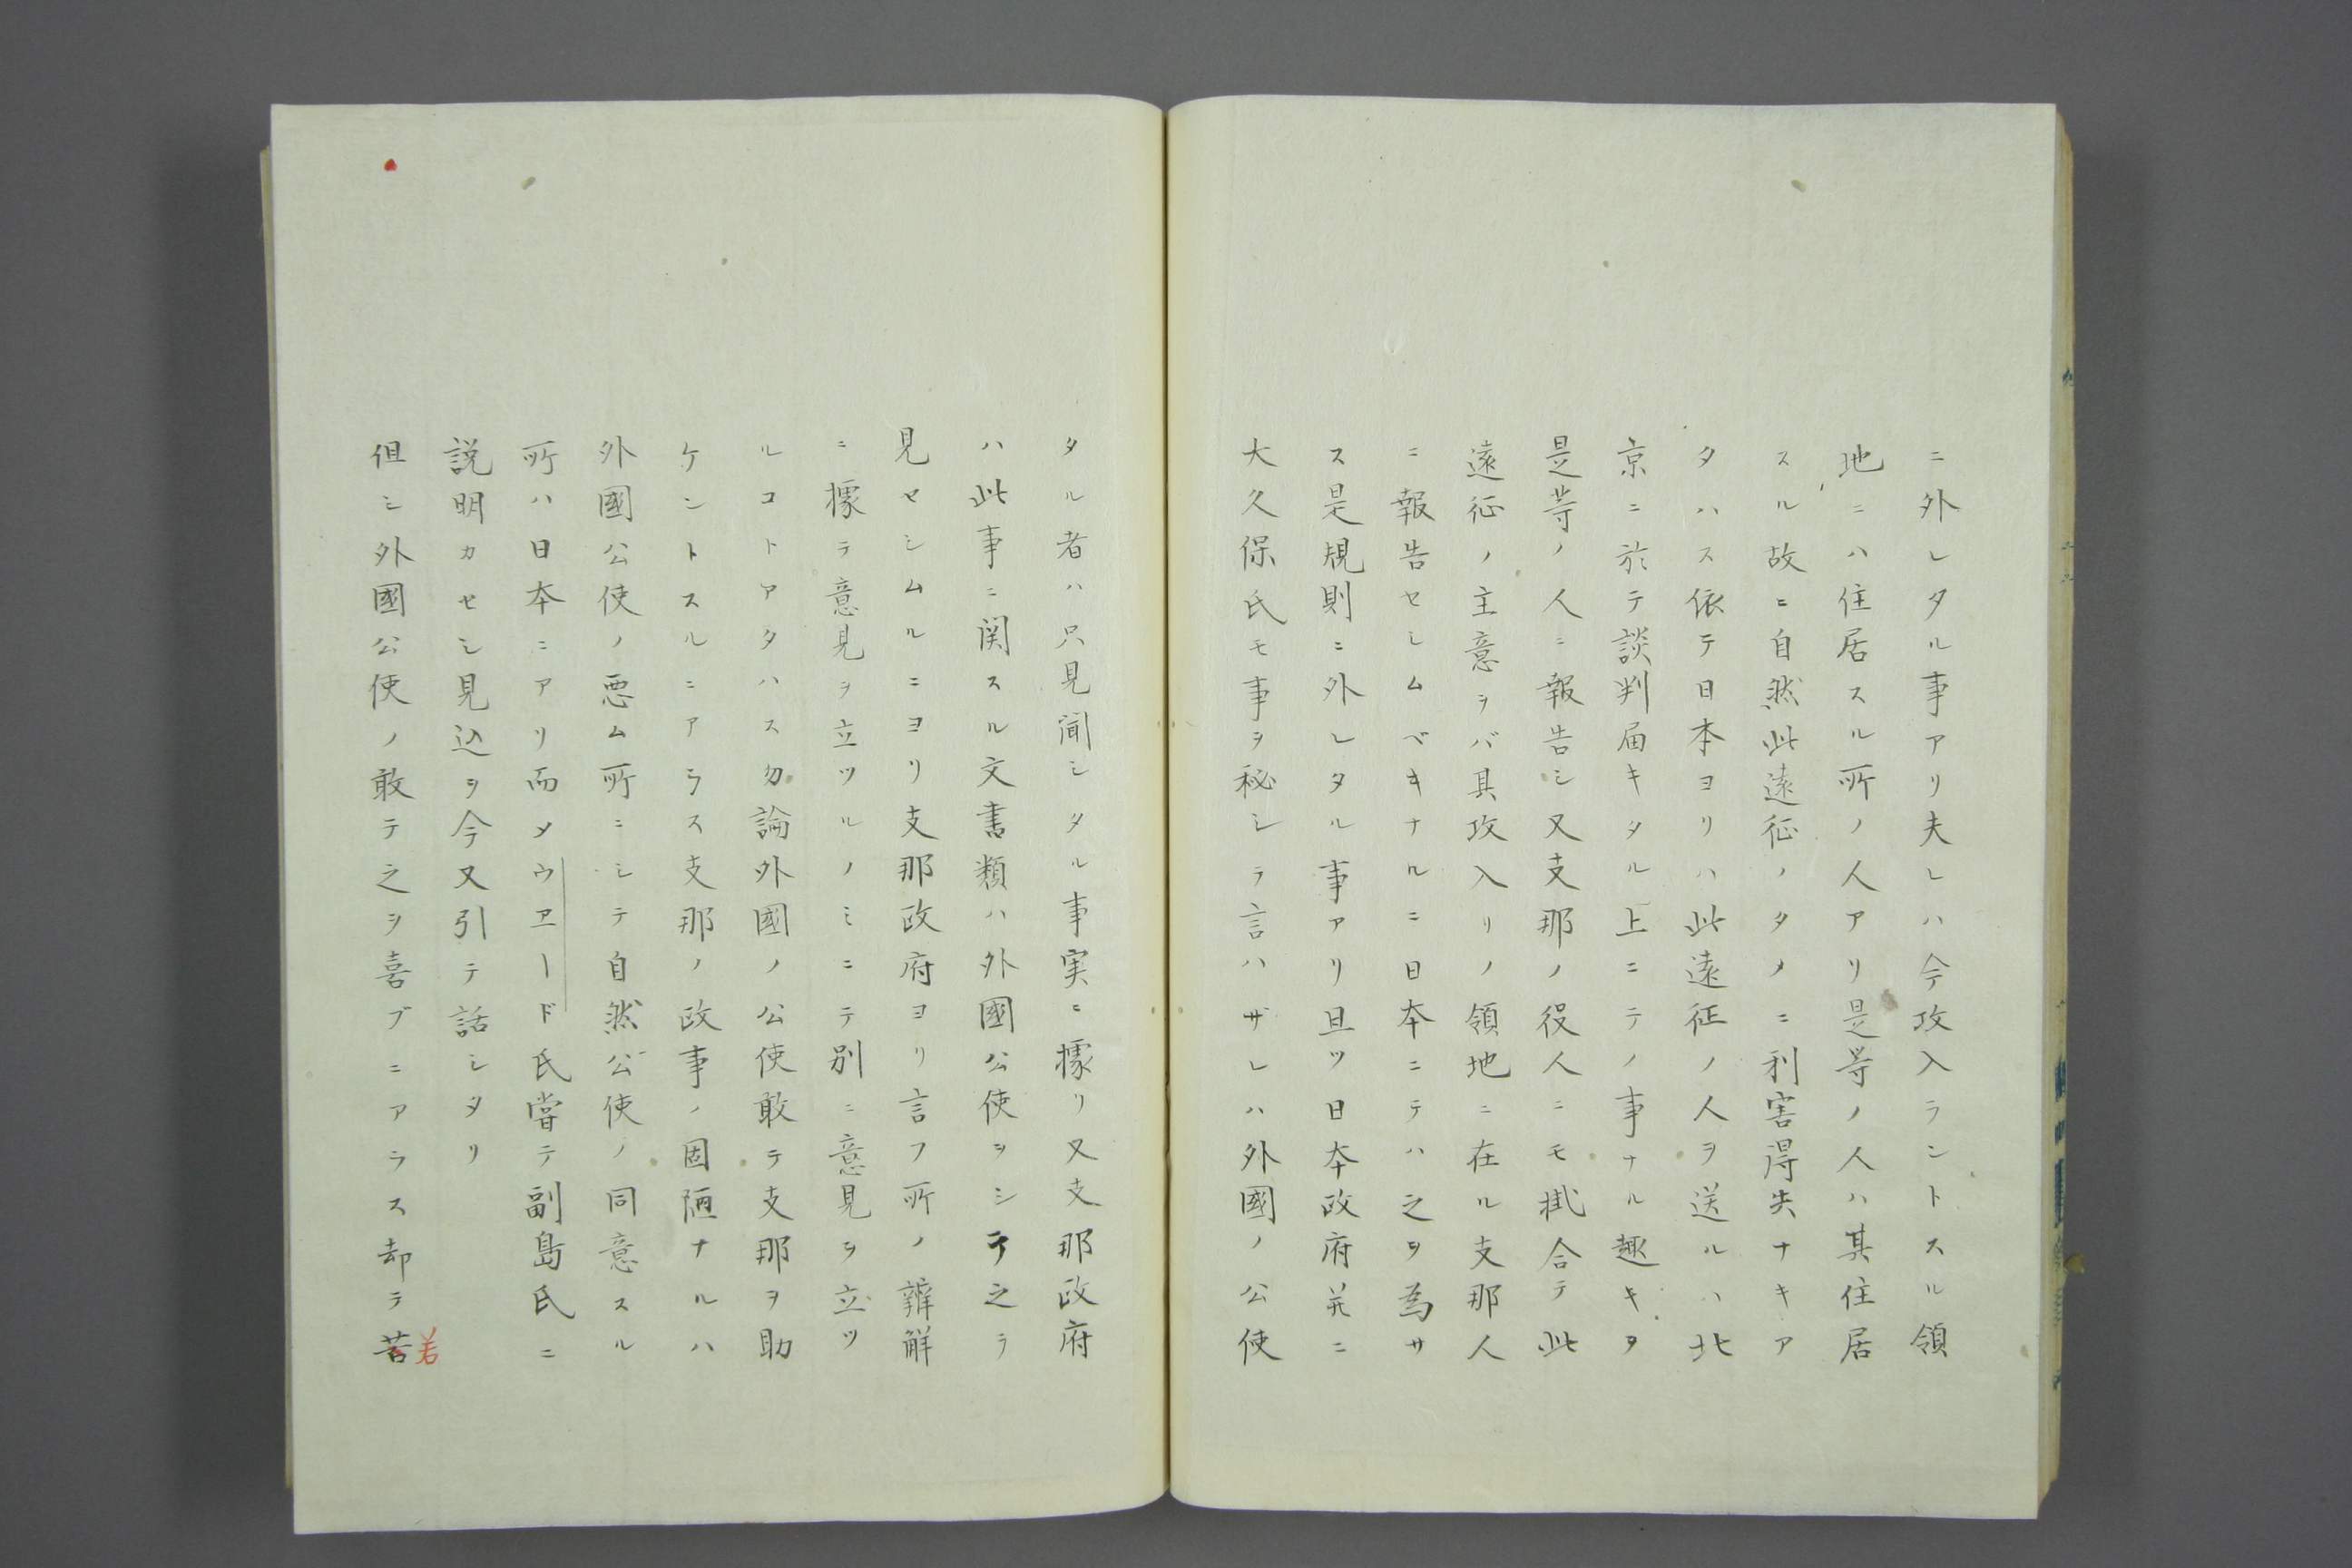 ニ外レタル事アリ夫レハ今攻入ラントスル領
地ニハ住居スル所ノ人アリ是等ノ人ハ其住居
スル故ニ自然此遠征ノタメニ利害得失ナキア
タハス依テ日本ヨリハ此遠征ノ人ヲ送ルハ北
京ニ於テ談判届キタル上ニテノ事ナル趣キヲ
是等ノ人ニ報告シ又支那ノ役人ニモ掛合テ此
遠征ノ主意ヲバ其攻入リノ領地ニ在ル支那人
ニ報告セシムベキナルニ日本ニテハ之ヲ為サ
ス是規則ニ外レタル事アリ且ツ日本政府并ニ
大久保氏モ事ヲ秘シテ言ハザレハ外國ノ公使
タル者ハ只見聞シタル事実ニ據リ又支那政府
ハ此事ニ関スル文書類ハ外國公使ヲシテ之ヲ
見セシムルニヨリ支那政府ヨリ言フ所ノ辨解
ニ據テ意見ヲ立ツルノミニテ別ニ意見ヲ立ツ
ルコトアタハス勿論外國ノ公使敢テ支那ヲ助
ケントスルニアラス支那ノ政事ノ固陋ナルハ
外國公使ノ悪ム所ニシテ自然公使ノ同意スル
所ハ日本ニアリ而メウエード氏嘗テ副島氏ニ
説明カセシ見込ヲ今又引テ話シタリ
但シ外國公使ノ敢テ之ヲ喜ブニアラス却テ苦
若